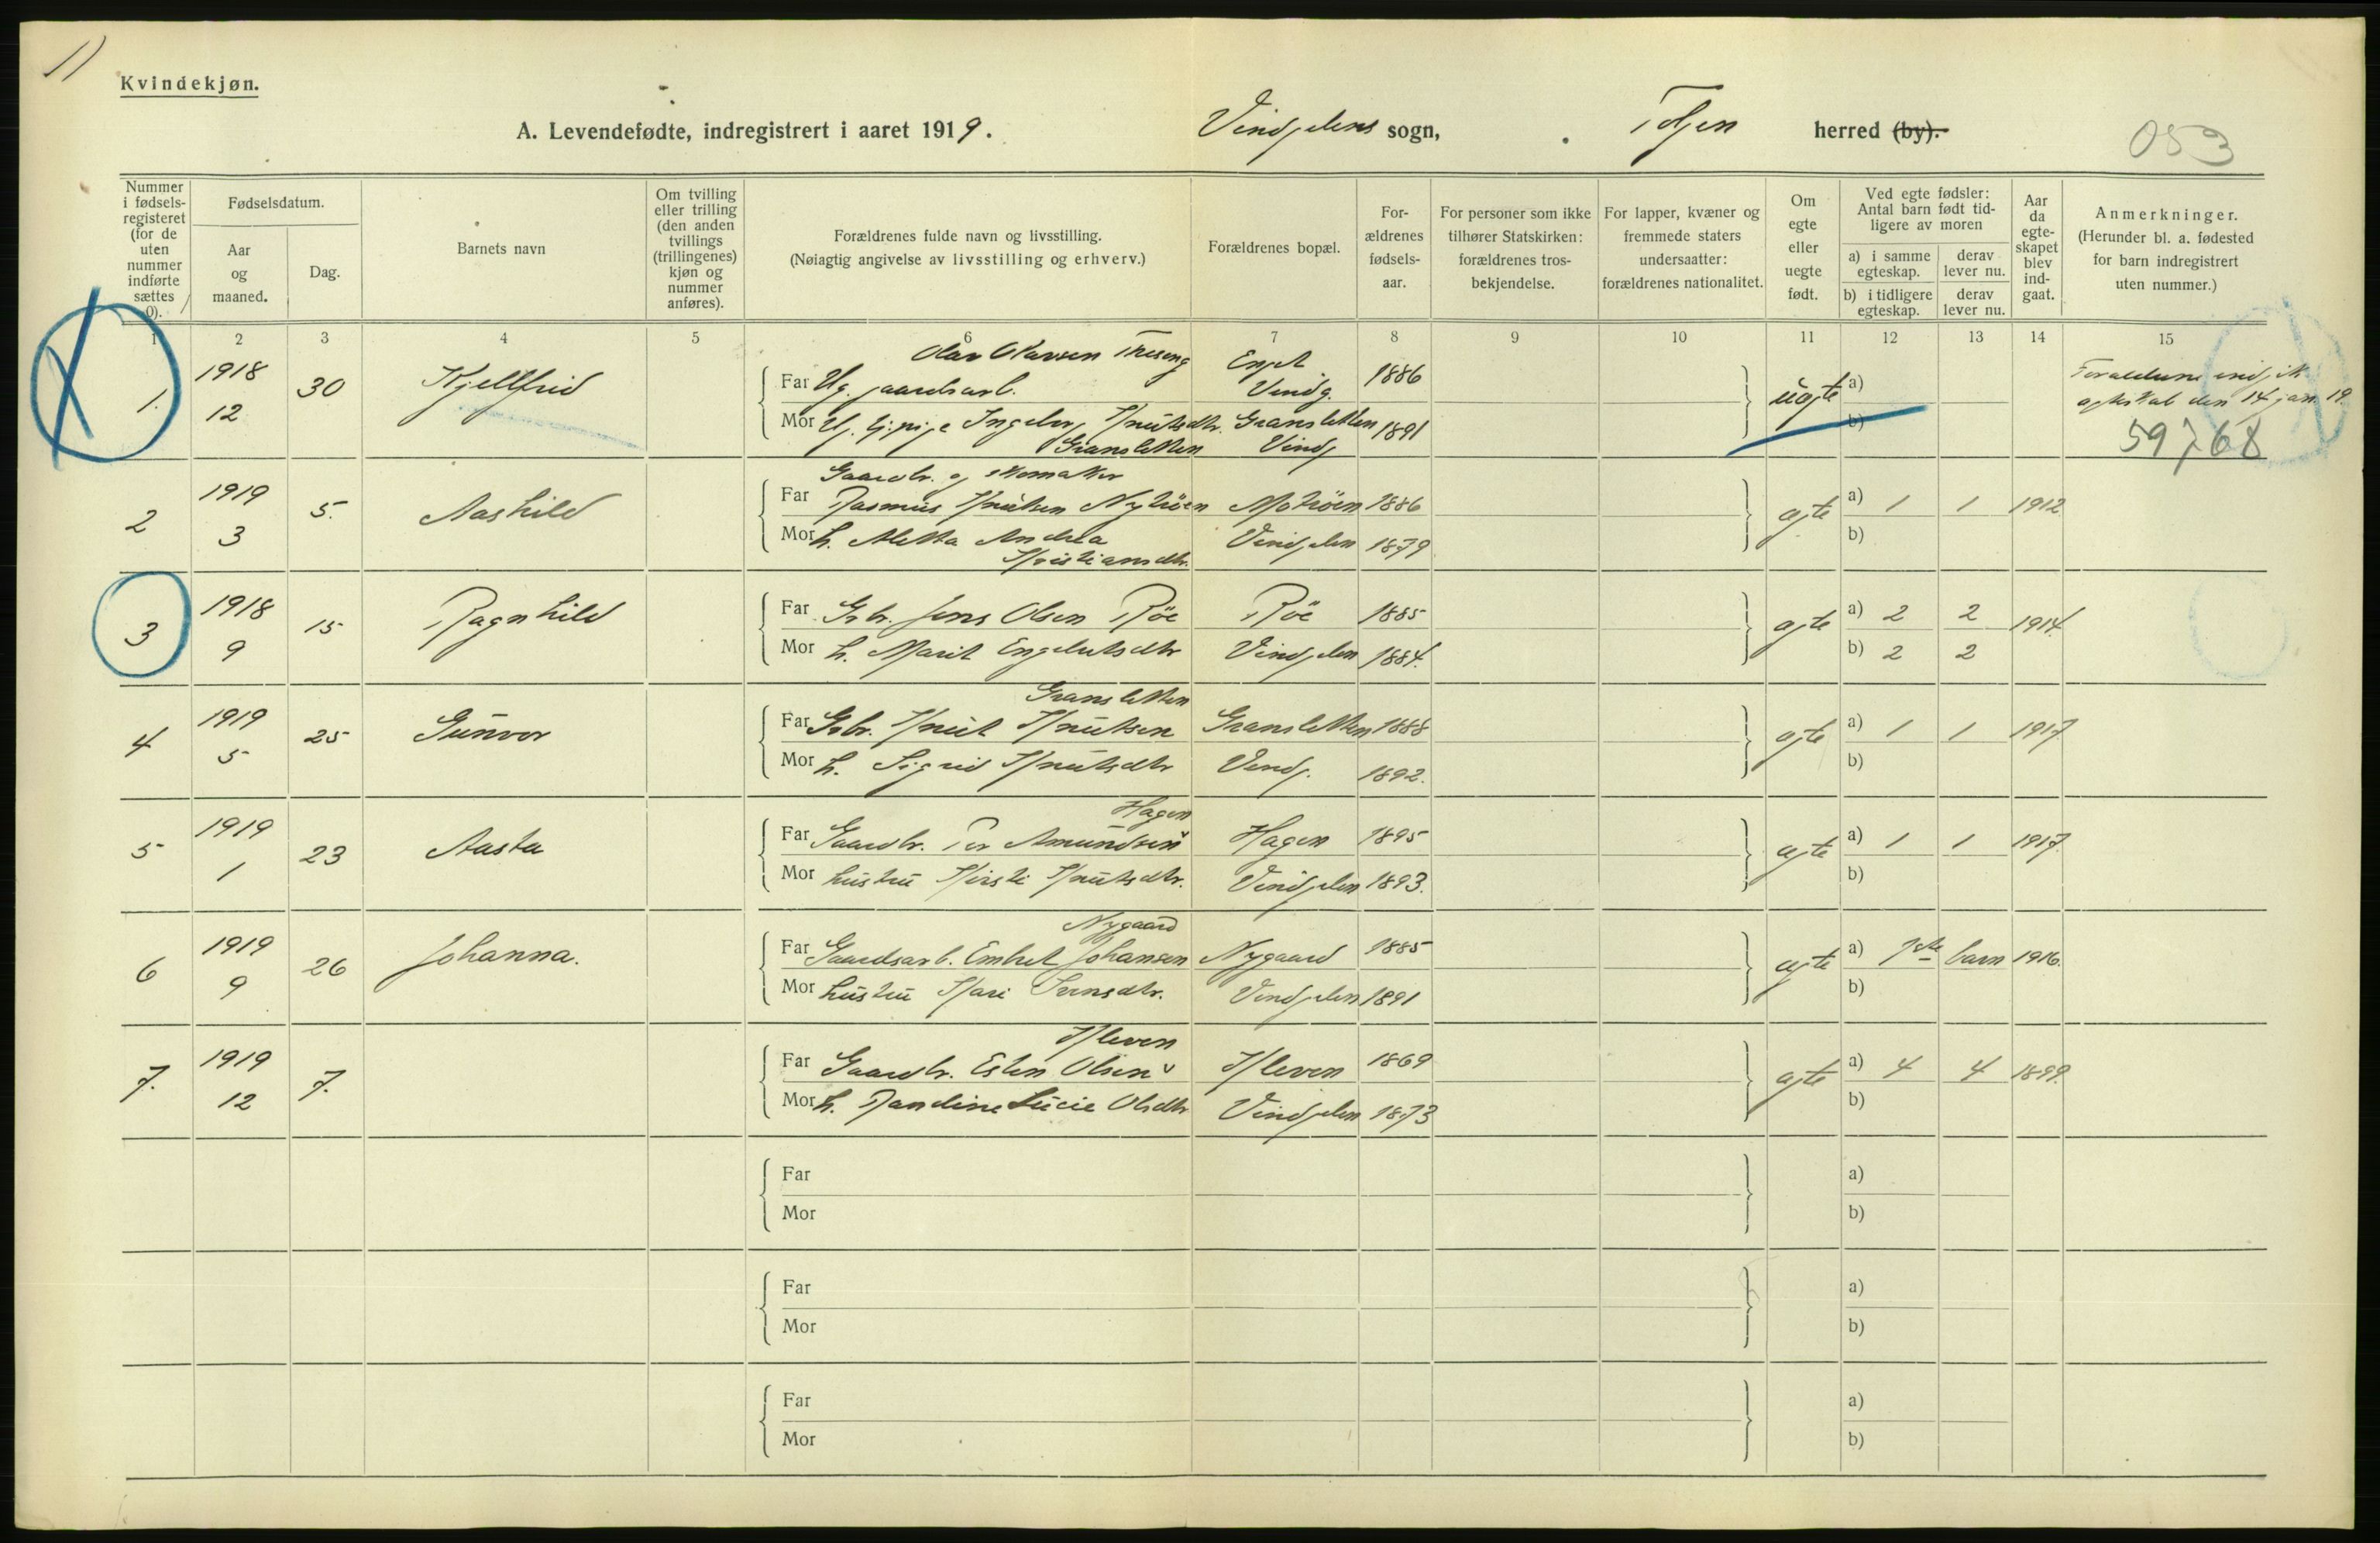 1)
Kvindekjøn.
A. Levendefødte, indregistrert i aaret 1919. Vingelens sogn, Tolgen herred (by).
053
Nummer i fødsels-registeret (for de uten nummer indførte sættes 0).
Fødselsdatum.
Aar og maaned.
Dag.
Barnets navn
Om tvilling eller trilling (den anden tvillings (trillingenes) kjøn og nummer anføres).
Forældrenes fulde navn og livsstilling.
(Nøiagtig angivelse av livsstilling og erhverv.)
Forældrenes bopæl.
For-ældrenes fødsels-aar.
For personer som ikke tilhører Statskirken: forældrenes tros-bekjendelse.
For lapper, kvæner og fremmede staters undersaatter: forældrenes nationalitet.
Om egte eller uegte født.
Ved egte fødsler: Antal barn født tid-ligere av moren
a) i samme egteskap.
derav lever nu.
b) i tidligere egteskap.
derav lever nu.
Aar da egte-skapet blev ind-gaat.
Anmerkninger.
(Herunder bl. a. fødested for barn indregistrert uten nummer.)
1 2 3 4 5 6 7 8 9 10 11 12 13 14 15
1. 1918 12 30 Kjellfrid
Olav Olavsen
Far Ug. gaardsarb. Enget Vingl. 1886
Mor Ug. Ingebor Knutsdtr. Gransletten 1891
Gransletten Ving
uegte a)
b)
Foreldrene indgik
egteskab den 14 jan. 19.
59768
2 1919 3 5. Aashild
Gaardbr. og skomaker
Far Rasmus Knutsen Nytrøen Motrøen 1886
Mor h. Aletta Andrea Vingelen 1879
Kristiansdtr.
egte a) 1 1 1912
b)
3 1918 9 15 Ragnhild
Far Gbr. Jons Olsen Röe Röe 1885
Mor h. Marit Engebretsdtr Vingelen 1884.
egte a) 2 2 1914.
b) 2 2
4 1919 5 25 Gunvor
Gransletten
Far Gbr. Knut Knutsen Gransletten 1888
Mor h. Sigrid Knutsdtr Ving. 1892.
egte a) 1 1 1917.
b)
5 1919 1 23 Aasta
Hagen
Far Gaardbr. Per Amundsen Hagen 1895
Mor hustru Kirsti Knutsdtr. Vingelen 1893.
egte a) 1 1 1917.
b)
6 1919 9 26 Johanna.
Nygaard
Far Gaardsarb. Embret Johansen Nygaard 1885
Mor hustru Kari Svensdtr. Vingelen 1891
egte a) 1ste barn 1916.
b)
7. 1919 12 7.
Kleven
Far Gaardbr. Esten Olsen Kleven 1869
Mor h. Randine Lucie Olsdtr Vingelen 1873
egte a) 4 4 1899.
b)
Far a)
Mor b)
Far a)
Mor b)
Far a)
Mor b)